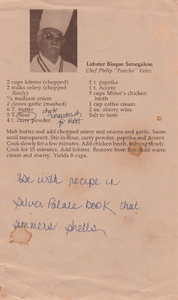 Lobster Bisque Senegalese
Chef Philip "Pancho" Velez
2 cups lobster (chopped)
2 stalks celery (finely
chopped)
½ medium onion
2 cloves garlic (mashed)
6 T. butter
5 T. flour
4 t. curry powder
1 t. paprika
1 t. Accent
5 cups Minor's chicken
broth
1 cup coffee cream
2 oz. sherry wine
Salt to taste
Melt butter and add chopped celery and onions and garlic. Saute
until transparent. Stir in flour, curry powder, paprika and Accent.
Cook slowly for a few minutes. Add chicken broth, stirring slowly.
Cook for 15 minutes. Add lobster. Remove from fire. Add warm
cream and sherry. Yields 8 cups.
Use with recipe in
Silver Palate book that
simmers shells